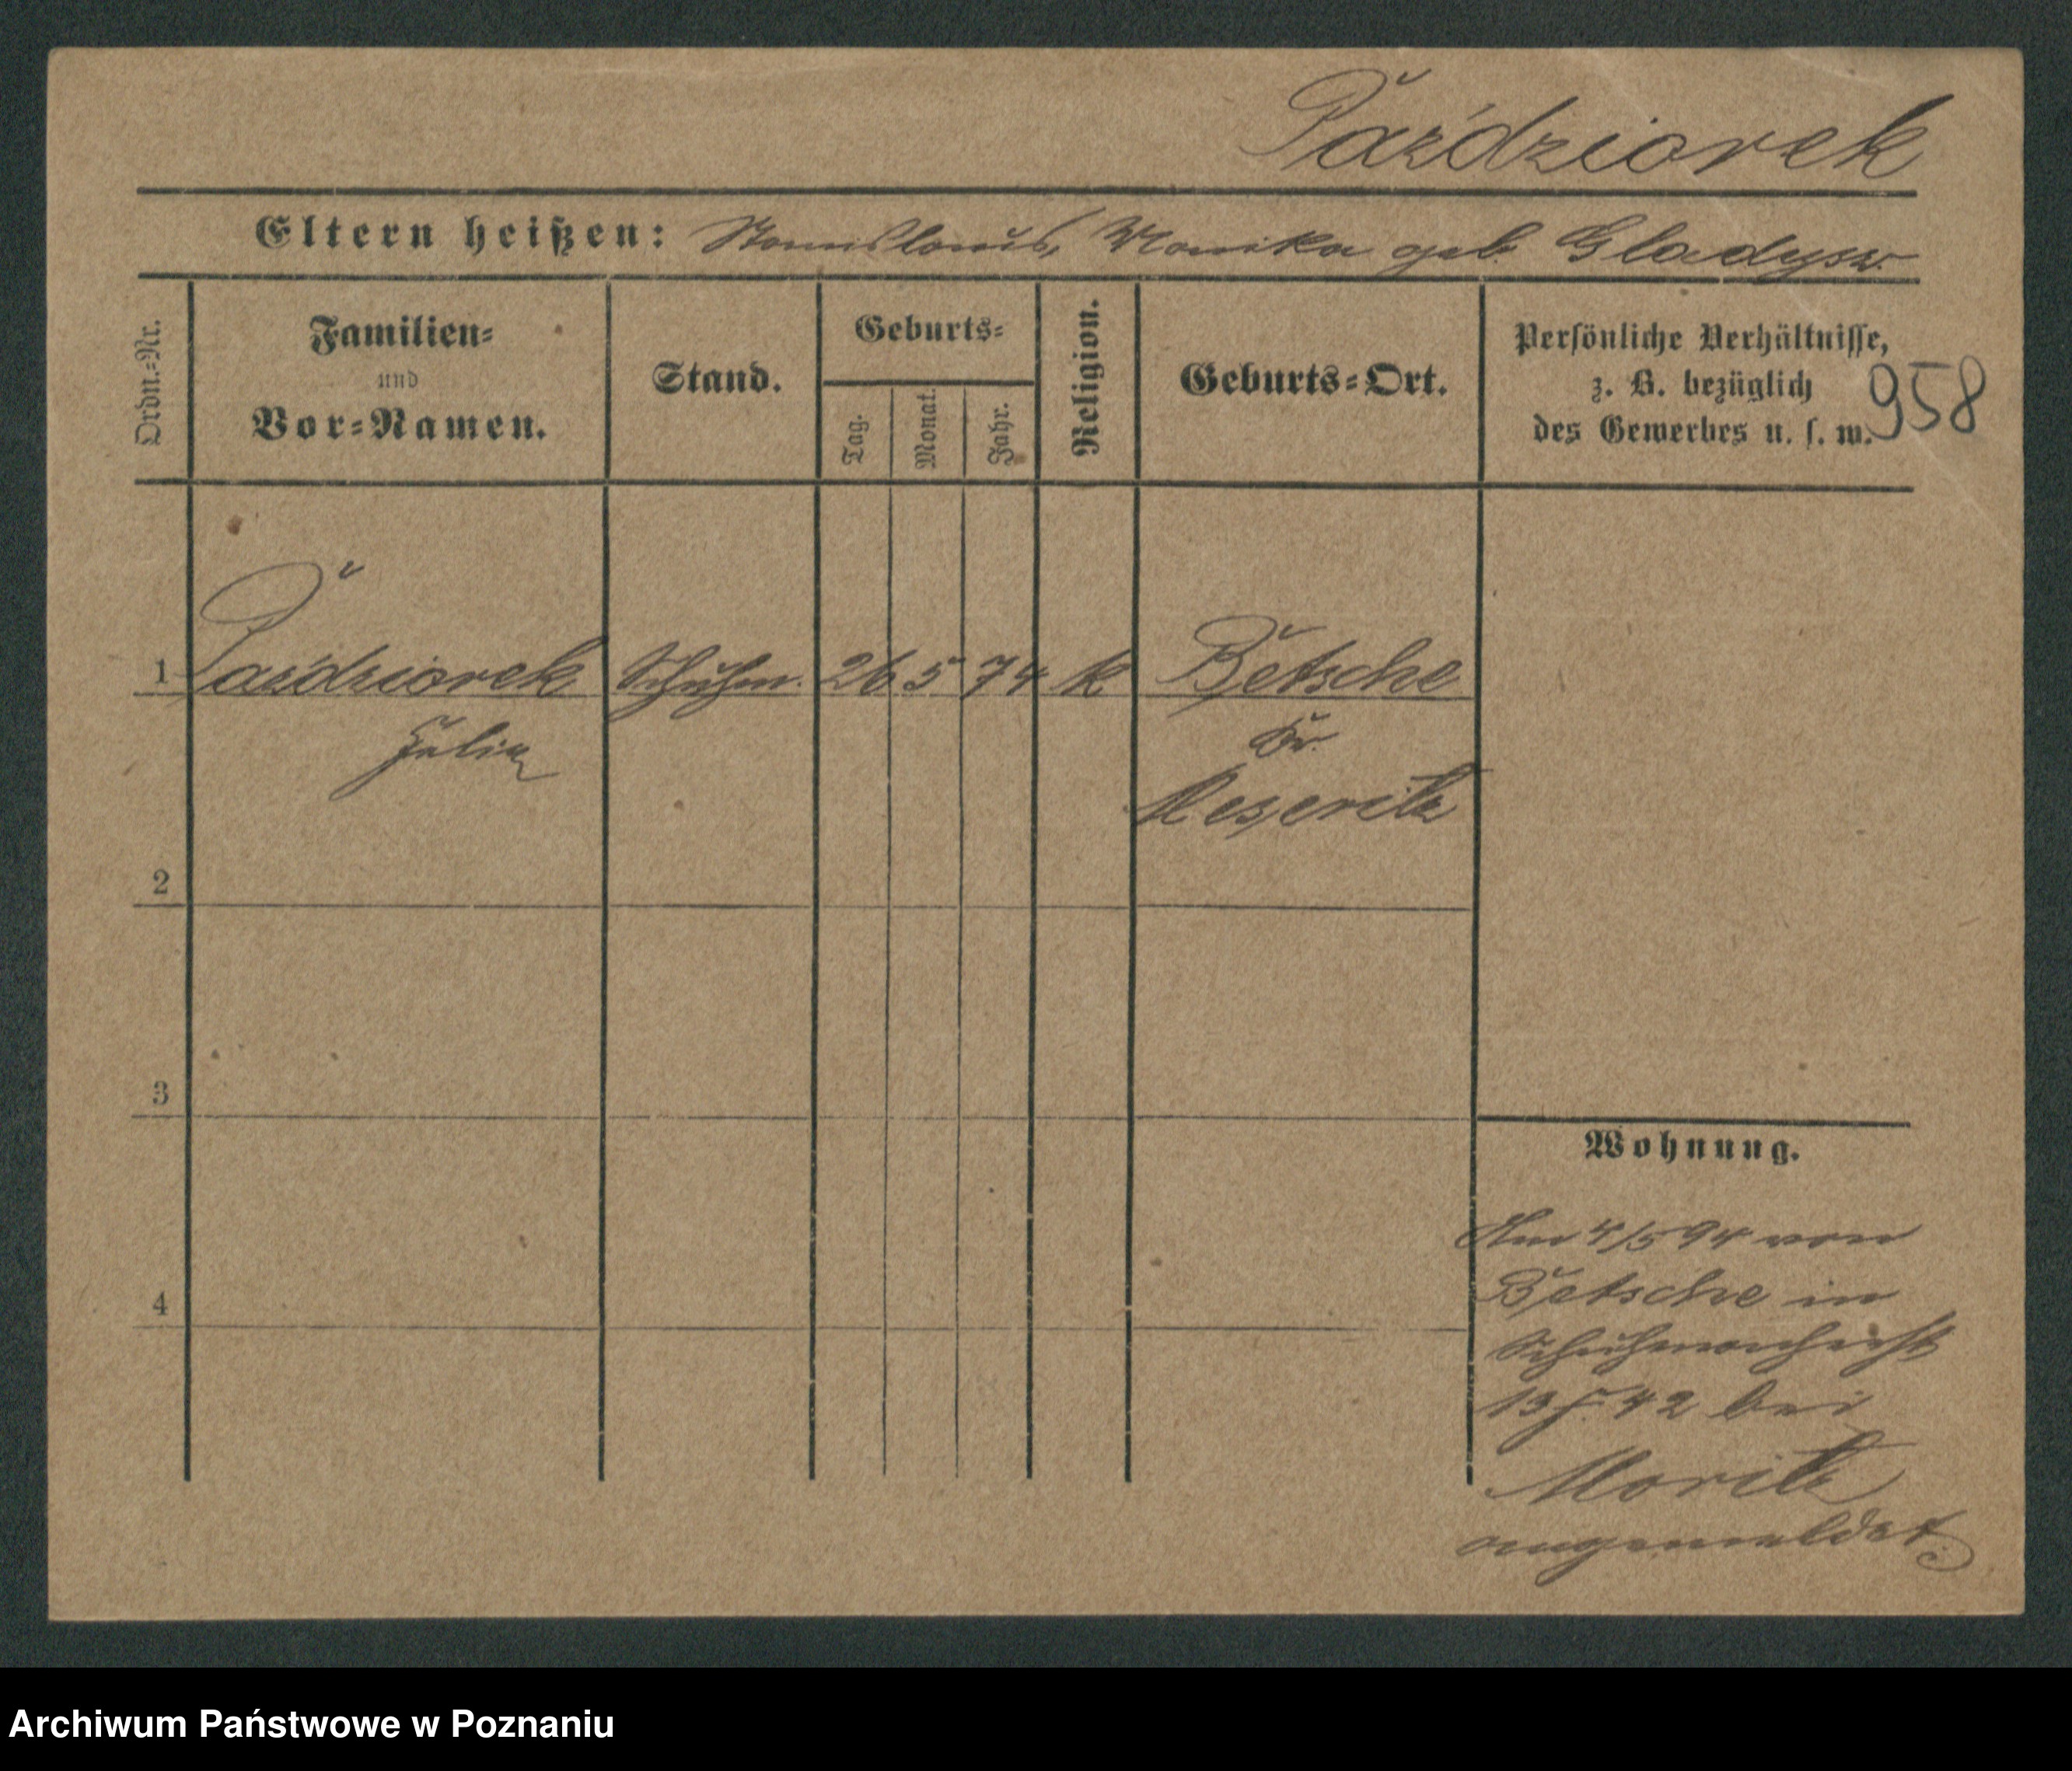 Paździorek
Eltern heißen: Stanislaus, Monika geb. Gladysz.
Ordn.-Nr.
Familien-
und
Vor-Namen.
Stand.
Geburts-
Tag.
Monat.
Jahr.
Religion.
Geburts-Ort.
Persönliche Verhältnisse,
z. B. bezüglich
des Gewerbes u. s. w.
958
1 Paździorek Schuhm. 26 5 74 k Betsche
Julian
Kr.
Meseritz
2
3
4
Wohnung.
Am 4/5 94 von
Betsche in
13 42 bei
Moritz
angemeldet.
Archiwum Państwowe w Poznaniu